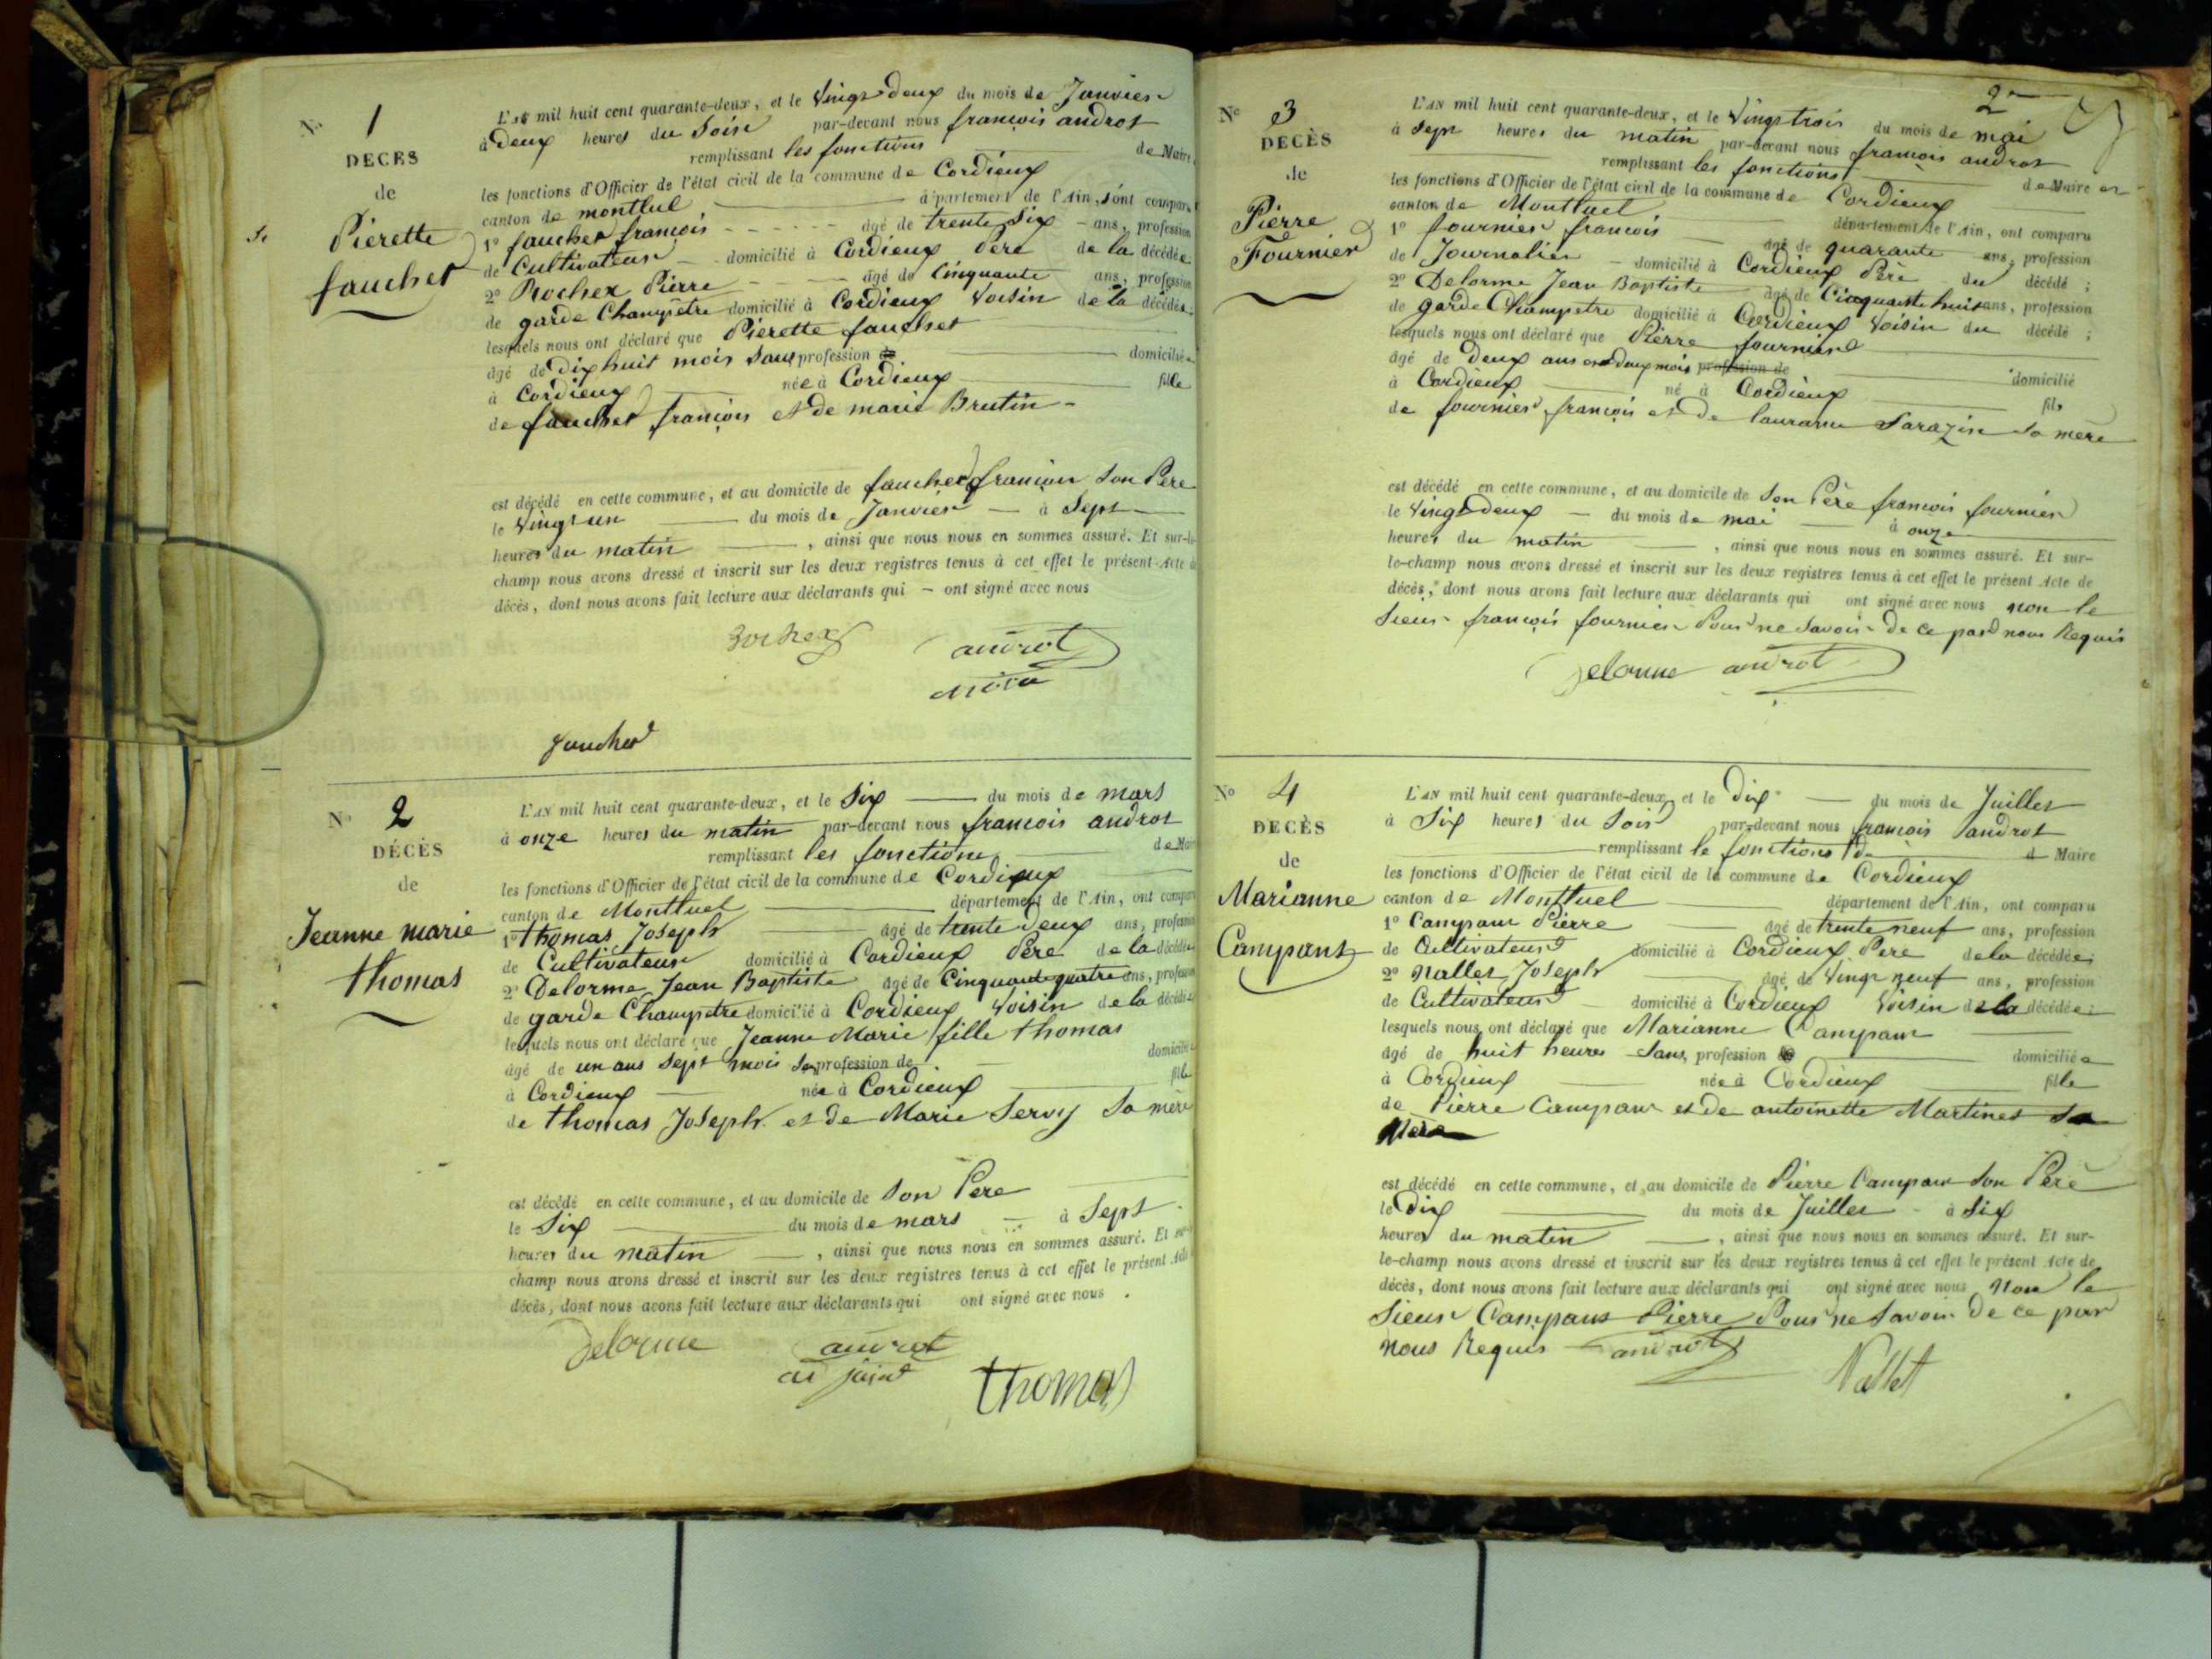 N° 1
DECES
de
Pierette
faucher
L'AN mil huit cent quarante-deux, et le Vingt deux du mois de Janvier
à deux heures du Soir par-devant nous françois androt
remplissant les fonctions de Maire
les fonctions d'Officier de l'état civil de la commune de Cordieux
canton de montluel département de l'Ain, sont comparu
1° faucher françois âgé de trente Six ans, profession
de Cultivateur domicilié à Cordieux Père de la décédée
2° Rochex Pierre âgé de Cinquante ans, profession
de garde Champêtre domicilié à Cordieux Voisin de la décédée;
lesquels nous ont déclaré que Pierette faucher
âgé de dix huit mois Sans profession domiciliée
à Cordieux née à Cordieux fille
de faucher françois et de marie Brutin
est décédé en cette commune, et au domicile de faucher françois Son Père
le Vingt un du mois de Janvier à Sept
heures du matin, ainsi que nous nous en sommes assuré. Et sur-le
champ nous avons dressé et inscrit sur les deux registres tenus à cet effet le présent Acte de
décès, dont nous avons fait lecture aux déclarants qui – ont signé avec nous
Rochex androt
faucher
N° 2
DÉCÈS
de
Jeanne marie
thomas
L'AN mil huit cent quarante-deux, et le Six du mois de mars
à onze heures du matin par-devant nous françois androt
remplissant les fonctions de Maire
les fonctions d'Officier de l'état civil de la commune de Cordieux
canton de Montluel département de l'Ain, ont comparu
1° thomas Joseph âgé de trente deux ans, profession
de Cultivateur domicilié à Cordieux Père de la décédée
2° Delorme Jean Baptiste âgé de Cinquante quatre ans, profession
de garde Champetre domicilié à Cordieux Voisin de la décédée
lesquels nous ont déclaré que Jeanne Marie fille thomas
âgé de un ans Sept mois profession de domicilié
à Cordieux née à Cordieux fille
de thomas Joseph et de Marie Servy Sa mère
est décédé en cette commune, et au domicile de Son Pere
le Six du mois de mars à Sept
heures du matin, ainsi que nous nous en sommes assuré. Et sur
champ nous avons dressé et inscrit sur les deux registres tenus à cet effet le présent Acte
décès, dont nous avons fait lecture aux déclarants qui ont signé avec nous.
Delorme androt
adjoint thomas
2
N° 3
DECÈS
de
Pierre
Fournier
L'AN mil huit cent quarante-deux, et le Vingt trois du mois de mai
à Sept heures du matin par-devant nous françois androt
remplissant les fonctions de Maire et
les fonctions d'Officier de l'état civil de la commune de Cordieux
canton de Montluel département de l'Ain, ont comparu
1° fournier françois âgé de quarante ans, profession
de Journalier domicilié à Cordieux Père du décédé;
2° Delorme Jean Baptiste âgé de Cinquante huit ans, profession
de garde Champetre domicilié à Cordieux Voisin du décédé;
lesquels nous ont déclaré que Pierre fournier
âgé de deux ans et deux mois profession de domicilié
à Cordieux né à Cordieux fils
de fournier françois et de Sarazin Sa mère
est décédé en cette commune, et au domicile de Son Père françois fournier
le Vingt deux du mois de mai à onze
heures du matin, ainsi que nous nous en sommes assuré. Et sur-
le-champ nous avons dressé et inscrit sur les deux registres tenus à cet effet le présent Acte de
décès, dont nous avons fait lecture aux déclarants qui ont signé avec nous non le
Sieur françois fournier Pour ne Savoir de ce par nous Requis
Delorme androt
N° 4
DECÈS
de
Marianne
Campant
L'AN mil huit cent quarante-deux, et le dix du mois de Juillet
à Six heures du Soir par-devant nous françois androt
remplissant le fonctions de d Maire
les fonctions d'Officier de l'état civil de la commune de Cordieux
canton de Montluel département de l'Ain, ont comparu
1° Campant Pierre âgé de trente neuf ans, profession
de Cultivateur domicilié à Cordieux Pere de la décédée;
2° Nallet Joseph âgé de Vingt neuf ans, profession
de Cultivateur domicilié à Cordieux Voisin de la décédée;
lesquels nous ont déclaré que Marianne Campant
âgé de huit heures Sans profession domiciliée
à Cordieux née à Cordieux fille
de Pierre Campant et de antoinette Martinet Sa
Mere
est décédé en cette commune, et au domicile de Pierre Campant Son Père
le Dix du mois de Juillet à Six
heures du matin, ainsi que nous nous en sommes assuré. Et sur-
le-champ nous avons dressé et inscrit sur les deux registres tenus à cet effet le présent Acte de
décès, dont nous avons fait lecture aux déclarants qui ont signé avec nous Non le
Sieur Campant Pierre Pour ne Savoir De ce par
Nous Requis androt
Nallet